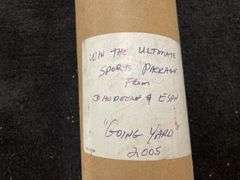 WIN THE ULTIMATE
SPORTS PACKAGE
FROM
& ESPN
"GOING YARD"
2005